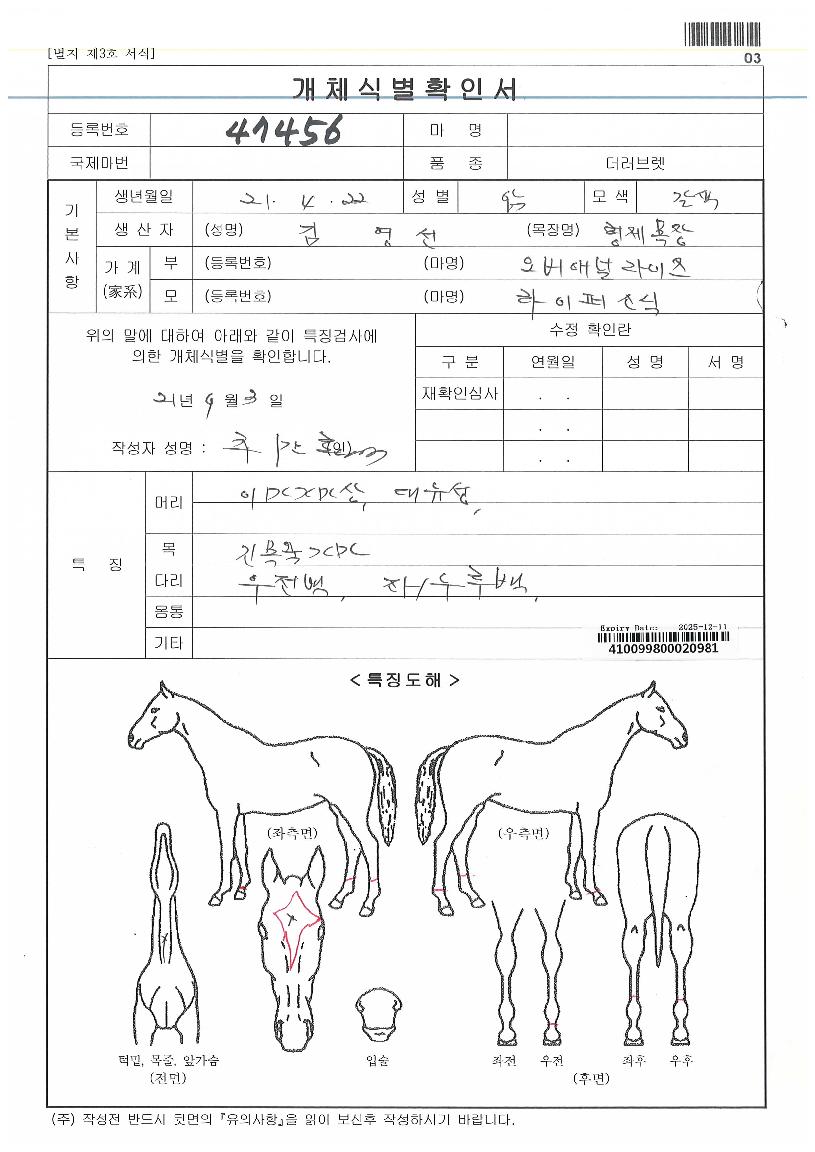 03
[별지 제3호 서식]
개체식별확인서
등록번호 47456 마 명
국제마번 품 종 더러브렛
기본사항
생년월일 21. 4. 22 성 별 암 모 색 갈색
생 산 자 (성명) 김 영 선 (목장명) 형제목장
가 계 (家系) 부 (등록번호) (마명) 오버애널라이즈
모 (등록번호) (마명) 라이퍼소식
위의 말에 대하여 아래와 같이 특징검사에
의한 개체식별을 확인합니다.
21년 9월 3일
작성자 성명 : (인)
수정 확인란
구 분 연월일 성 명 서 명
재확인심사 . .
. .
. .
특 징
머리
목
다리 우전백, 좌/우후백,
몸통
기타
Expiry Date: 2025-12-11
410099800020981
< 특징도해 >
(좌측면) (우측면)
턱밑, 목줄, 앞가슴 입술 좌전 우전 좌후 우후
(전면) (후면)
(주) 작성전 반드시 뒷면의 『유의사항』을 읽어 보신후 작성하시기 바랍니다.